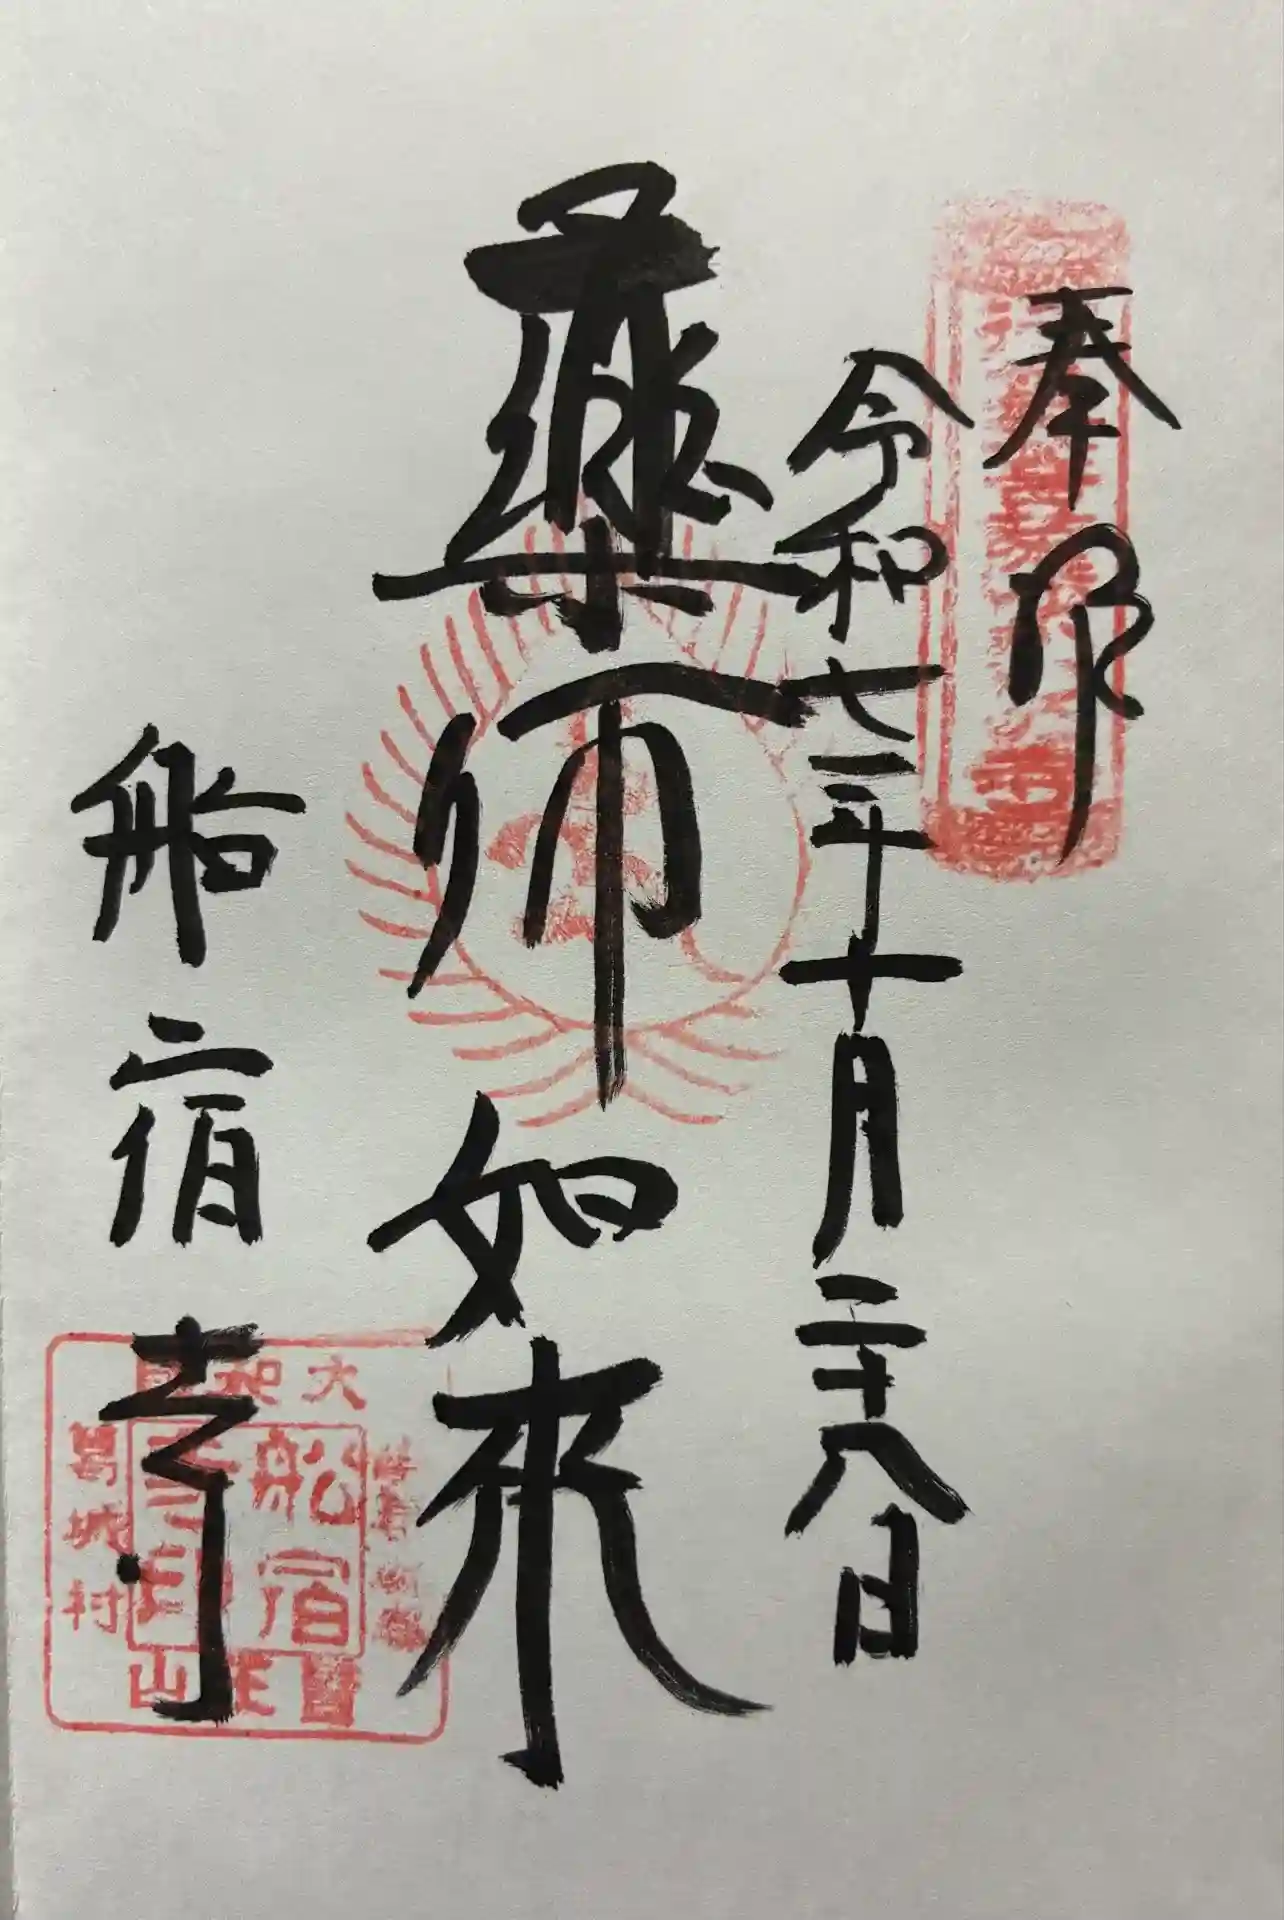 奉拝
令和七年十月二十八日
薬師如来
船宿寺
大和国
船宿
寺印
葛城村
医王山